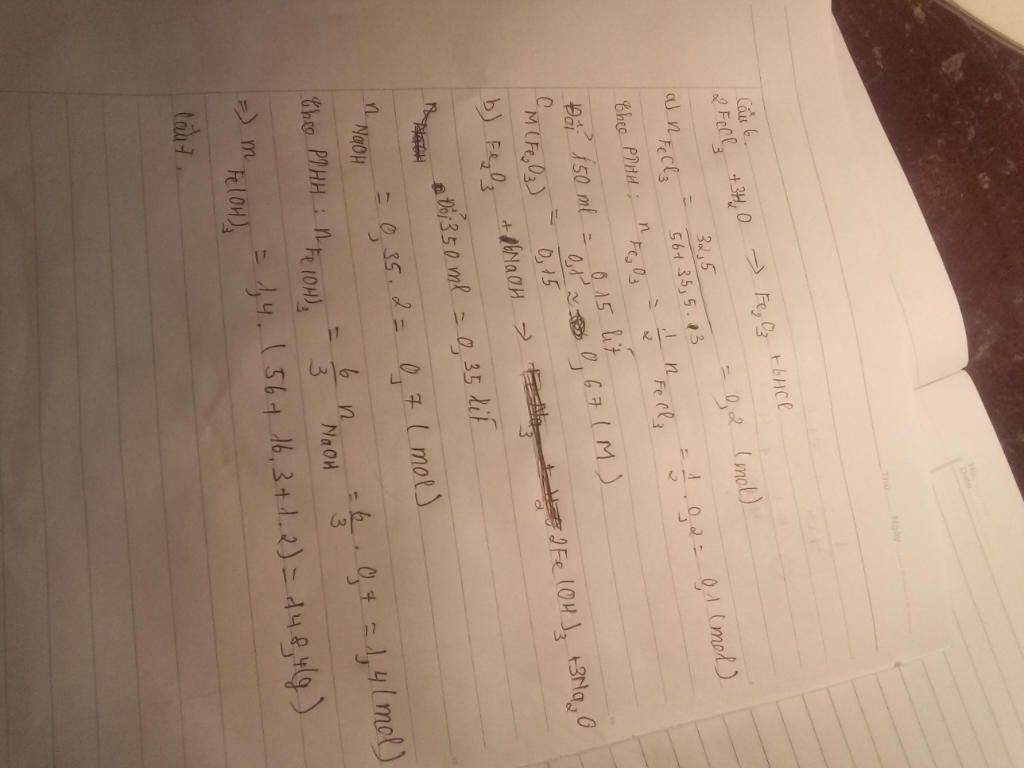 Câu 6.
2 FeCl3 + 3H2O → Fe2O3 + 6HCl
a) n FeCl3 = 32,5 / 56+35,5.3 = 0,2 (mol)
Theo PTHH : n Fe2O3 = 1/2 n FeCl3 = 1/2 . 0,2 = 0,1 (mol)
Đổi 150 ml = 0,15 lít
C M(Fe2O3) = 0,1 / 0,15 ≈ 0,67 (M)
b) Fe2O3 + 6NaOH → 2Fe(OH)3 + 3Na2O
Đổi 350 ml = 0,35 lít
n NaOH = 0,35 . 2 = 0,7 (mol)
Theo PTHH : n Fe(OH)3 = 6/3 n NaOH = 6/3 . 0,7 = 1,4 (mol)
=) m Fe(OH)3 = 1,4 . (56 + 16.3 + 1.2) = 148,4(g)
Câu 7.
Thứ
Ngày
No.
Date